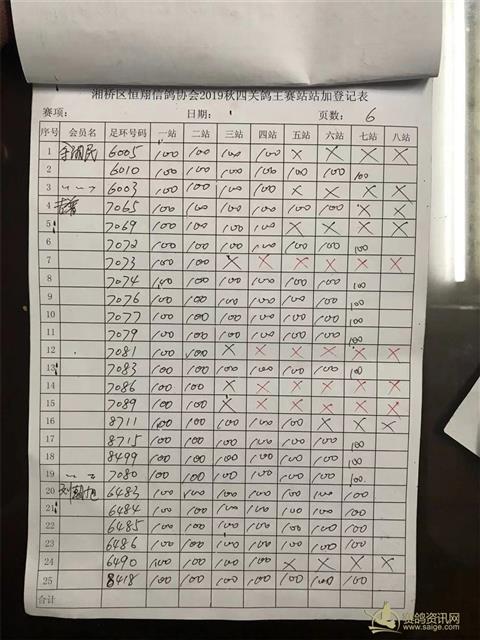 湘桥区恒翔信鸽协会2019秋四关鸽王赛站站加登记表
赛项: 日期: 页数: 6
序号 会员名 足环号码 一站 二站 三站 四站 五站 六站 七站 八站
1 6005 100 100 100 100 X X X X
2 6010 100 100 100 100 100 100 100
3 6003 100 100 100 100 X X X X
4 7065 100 100 100 100 100 100 X X
5 7069 100 100 100 100 X X X X
6 7072 100 100 100 100 100 100 100
7 7073 100 100 X X X X X X
8 7074 100 100 100 100 100 100 100
9 7076 100 100 100 100 100 100 100
10 7077 100 100 100 100 100 100 100
11 7079 100 100 100 100 100 100 100
12 7081 100 100 X X X X X X
13 7083 100 100 100 100 100 100 100
14 7086 100 100 X X X X X X
15 7089 100 100 X X X X X X
16 8711 100 100 100 100 100 X X X
17 8715 100 100 100 100 100 100 100
18 8499 100 100 100 100 100 100 100
19 7080 100 100 100 100 100 100 100
20 6483 100 100 100 100 100 100 100
21 6484 100 100 100 100 100 100 100
22 6485 100 100 100 100 100 100 100
23 6486 100 100 100 100 100 100 100
24 6490 100 100 100 100 X X X X
25 8418 100 100 100 100 100 100 100
合计
赛鸽资讯网
www.saige.com